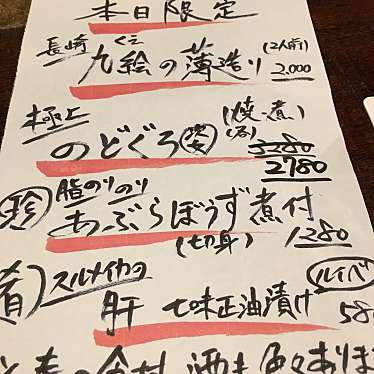 本日限定
長崎 くえ (2人前)
九絵の薄造り 2,000
極上 (焼・煮)
のどぐろ 3280
2780
珍 脂のりのり
あぶらぼうず煮付
(切身) 1280
肴) スルメイカの ルイベ
肝 七味正油漬け 580
酒も色々あります